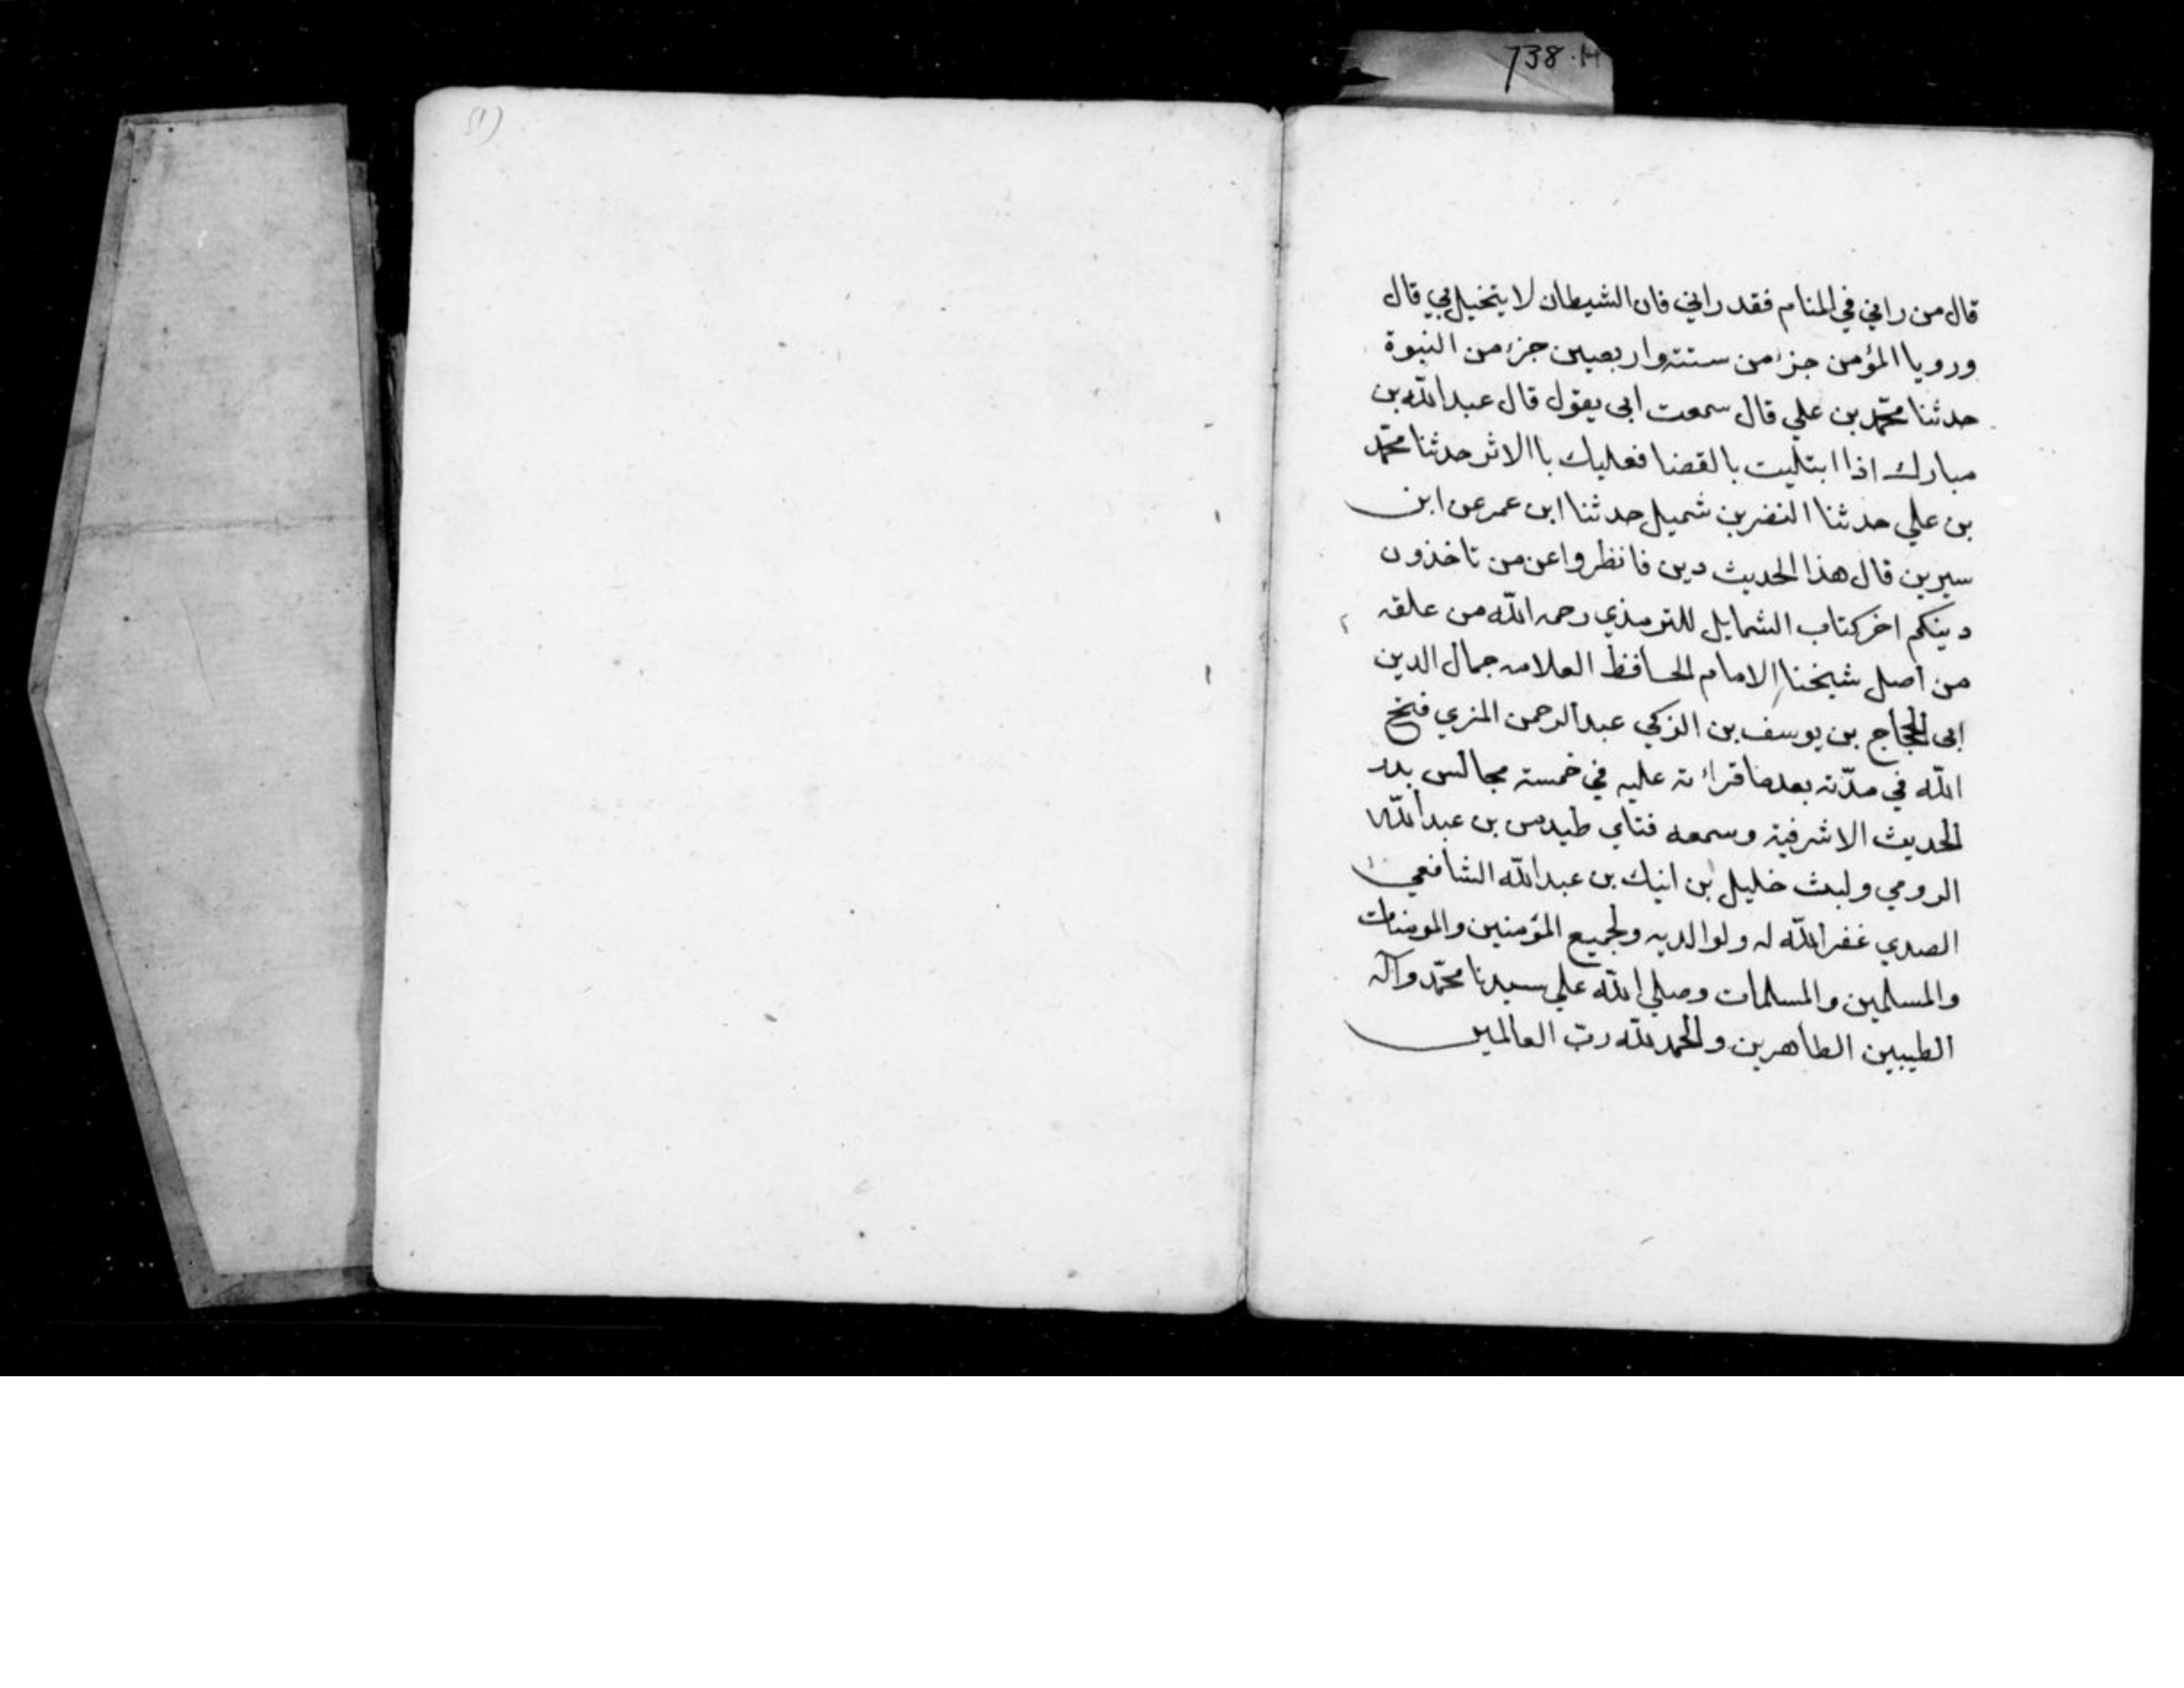 738.H
قال من راني في المنام فقد راني فان الشيطان لا يتخيل بي قال
ورويا المؤمن جزء من ستة واربعين جزء من النبوة
حدثنا محمد بن علي قال سمعت ابي يقول قال عبد الله بن
مبارك اذا ابتليت بالقضا فعليك باالاثر حدثنا محمد
بن علي حدثنا النضر بن شميل حدثنا ابن عمر عن ابن
سيرين قال هذا الحديث دين فانظروا عن من تاخذون
دينكم اخر كتاب الشمايل للترمذي رحمه الله من علقه
من اصل شيخنا الامام الحافظ العلامه جمال الدين
ابى الحجاج بن يوسف بن الزكي عبد الرحمن المزي فتح
الله في مدّته بعدما قراءته عليه في خمسة مجالس بدر
الحديث الاشرفية وسمعه فتاي بن عبد الله
الرومي خليل بن ايبك بن عبد الله الشافعي
الصدي غفر الله له ولوالديه ولجميع المؤمنين والمومنات
والمسلمين والمسلمات وصلي الله علي سيدنا محمّد وآله
الطيبين الطاهرين والحمد لله ربّ العالمين
(١)